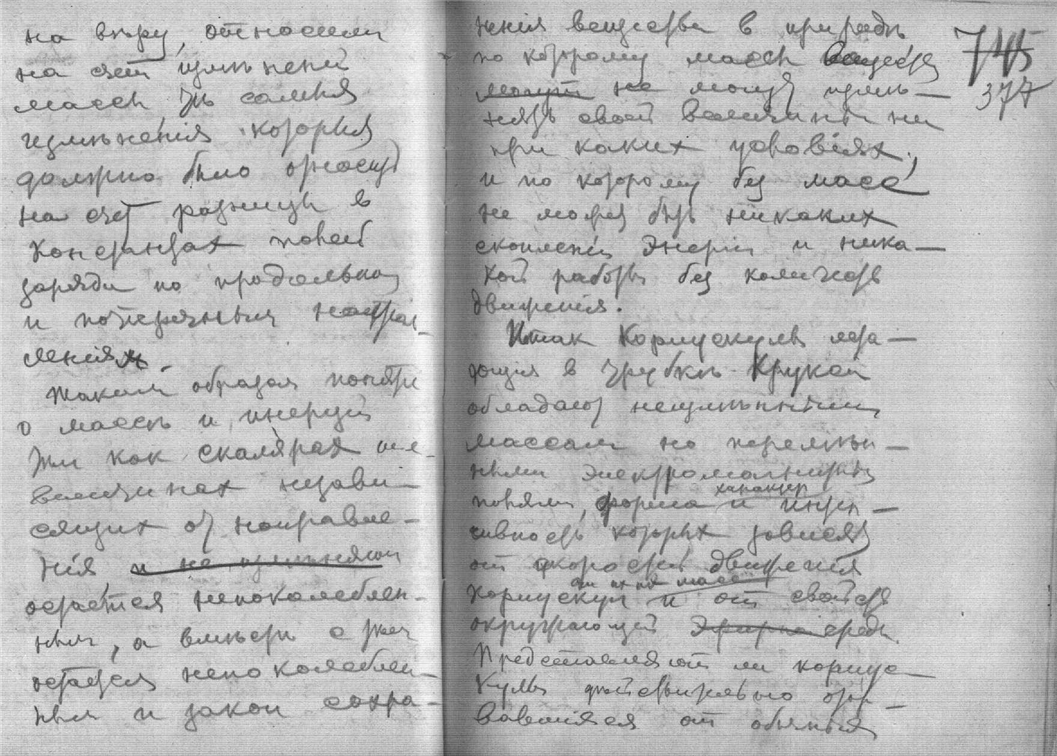 на вѣру, относили
на счет измѣнений
массы тѣ самыя
измѣнения которыя
должно было относить
на счет разницы в
Константах полей
заряда по продольным
и поперечным направ-
лениям.
Таким образом понятие
о массѣ и инерции
как скалярах
величинах незави-
сящих от направле-
ния, и не измѣняют
остается непоколеблен-
ным, а вмѣстѣ с тем
остается непоколеблен-
ным и закон сохра-
нения вещества в природѣ
по которому массы веществ
могут не могут измѣ-
нять своей величины ни
при каких условиях,
и по которому без массы
не может быть никаких
скоплений Энергии и ника-
кой работы без количеств
движения.
Итак Корпускулы лета-
ющия в трубкѣ Крукса
обладают неизмѣнными
массами но перемѣн-
ными электромагнитными
полями, форма и
характер
которых зависят
от скорости движения
корпускул и от свойств
от их массы
окружающей Эфирно среды.
Представляют ли корпус-
кулы дѣйствительно отор-
вавшияся от обычных
745
377